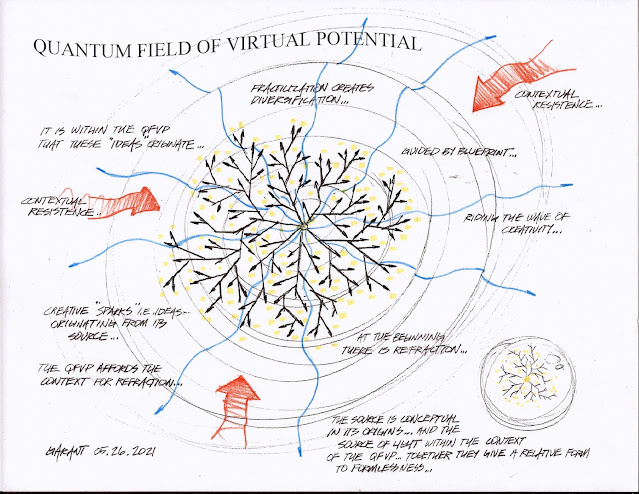 QUANTUM FIELD OF VIRTUAL POTENTIAL
FRACTILIZATION CREATES
DIVERSIFICATION...
CONTEXTUAL
RESISTENCE...
IT IS WITHIN THE QFVP
THAT THESE "IDEAS" ORIGINATE...
GUIDED BY BLUEPRINT...
CONTEXTUAL
RESISTENCE...
RIDING THE WAVE OF
CREATIVITY...
CREATIVE "SPARKS" i.e. IDEAS...
ORIGINATING FROM ITS
SOURCE...
AT THE BEGINNING
THERE IS REFRACTION...
THE QFVP AFFORDS THE
CONTEXT FOR REFRACTION...
THE SOURCE IS CONCEPTUAL
IN ITS ORIGINS... AND THE
SOURCE OF LIGHT WITHIN THE CONTEXT
OF THE QFVP... TOGETHER THEY GIVE A RELATIVE FORM
TO FORMLESSNESS...
GARANT 05.26.2021